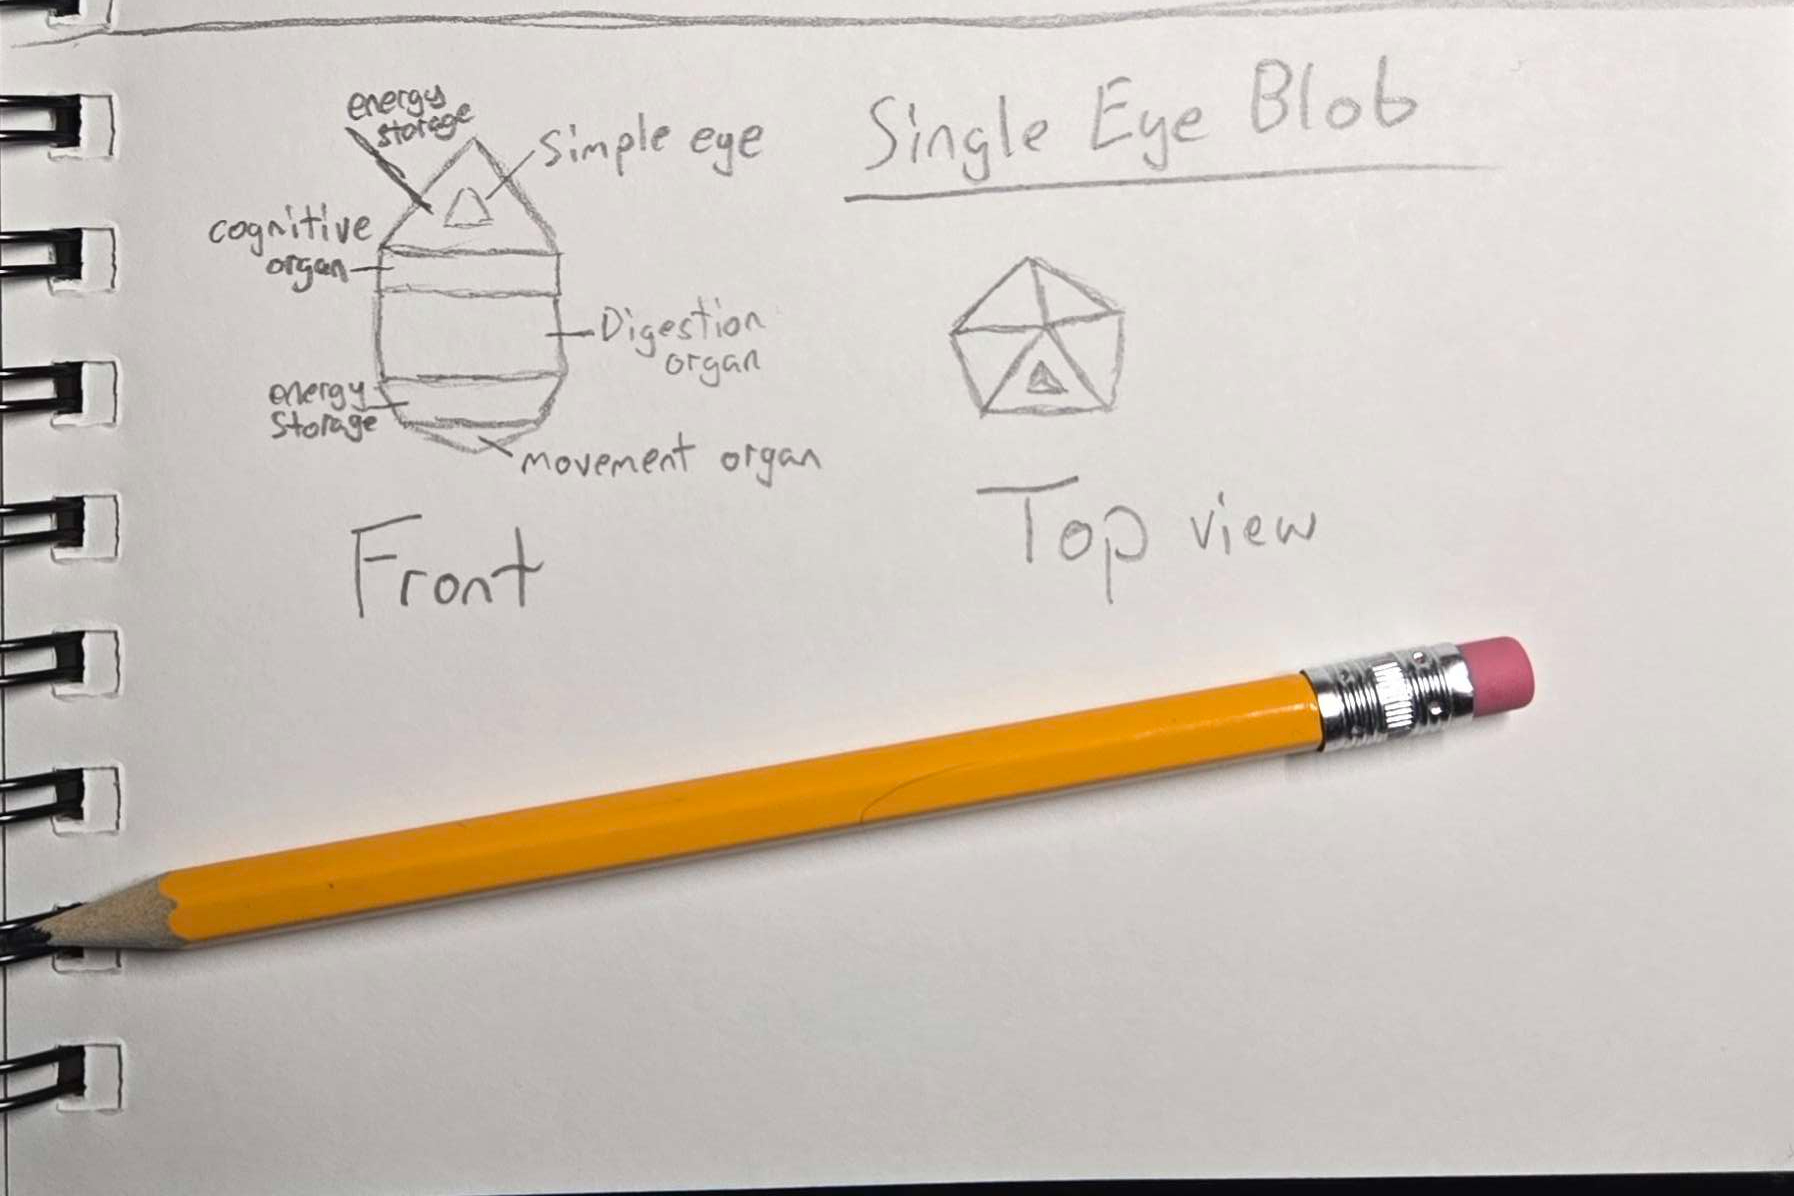 Single Eye Blob
energy
storage
Simple eye
cognitive
organ
Digestion
organ
energy
Storage
movement organ
Front
Top view